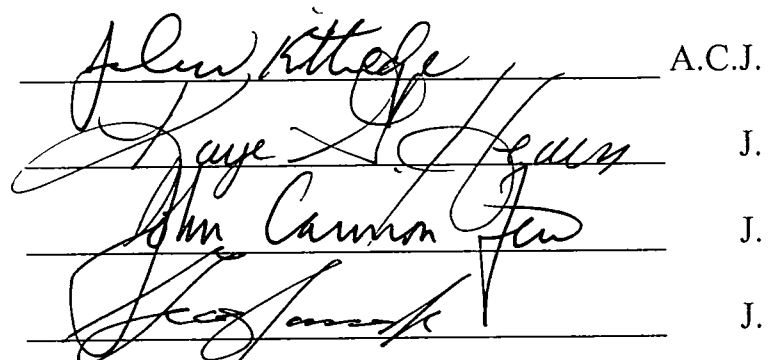 Kittredge A.C.J.
Kaye G. Hearn J.
John Cannon Few J.
J.